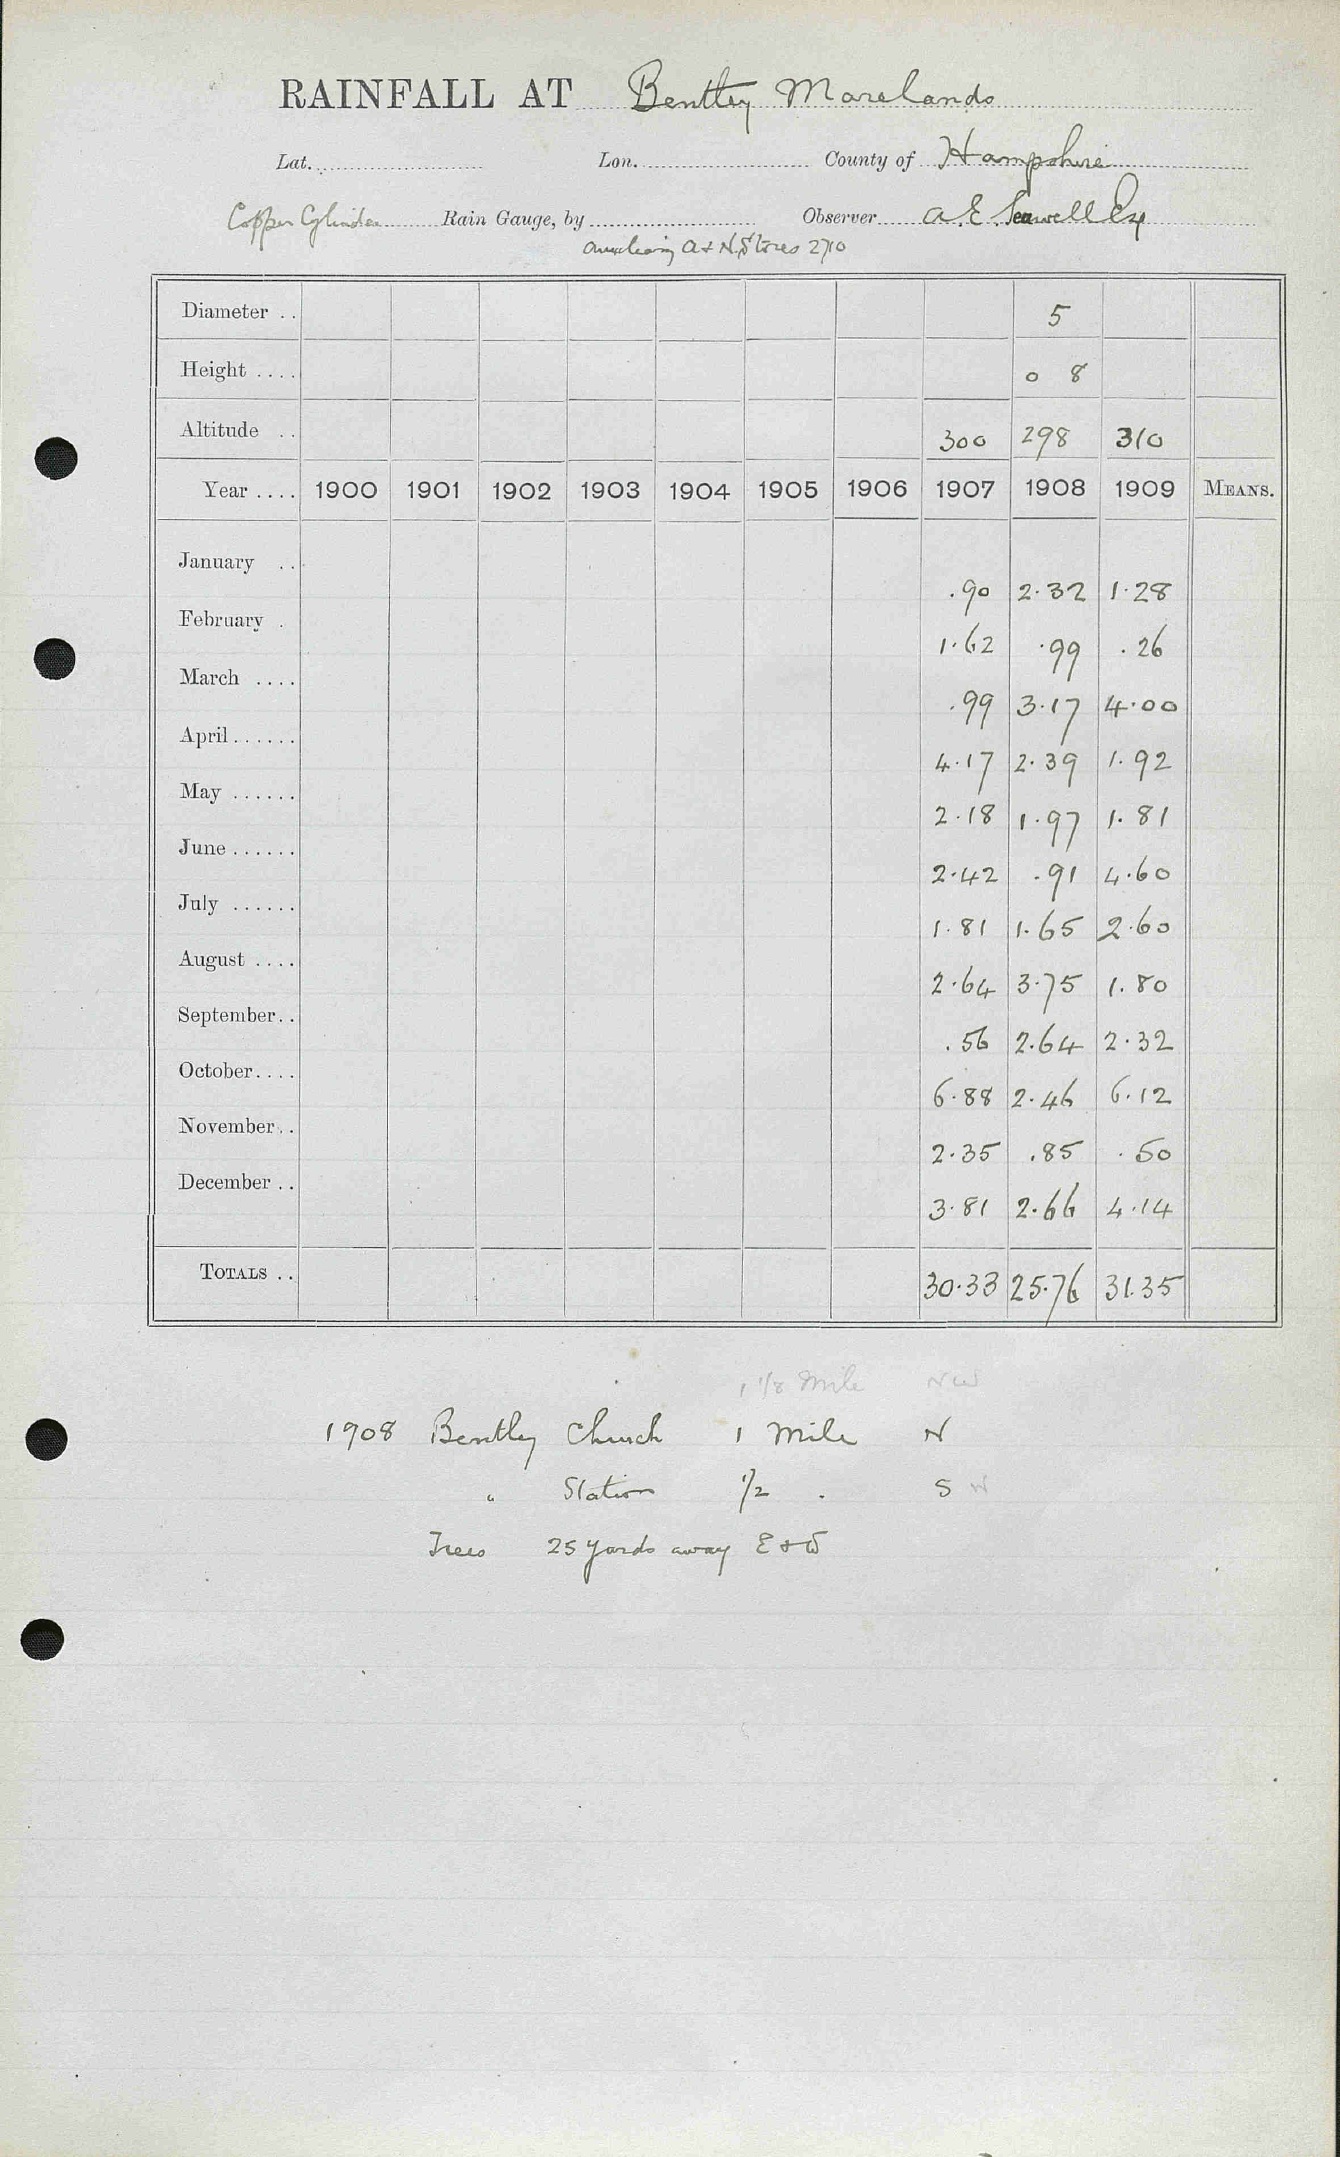 RAINFALL AT Bentley Marelands
Lat. Lon. County of Hampshire
Copper Cylinder Rain Gauge, by Observer A. E. Seawell Esq
A & N. Stores 2710
Diameter .. 5
Height .... 0 8
Altitude .. 300 298 310
Year .... 1900 1901 1902 1903 1904 1905 1906 1907 1908 1909 MEANS.
January .. .90 2.32 1.28
February . 1.62 .99 .26
March .... .99 3.17 4.00
April...... 4.17 2.39 1.92
May ...... 2.18 1.97 1.81
June ...... 2.42 .91 4.60
July ...... 1.81 1.65 2.60
August .... 2.64 3.75 1.80
September.. .56 2.64 2.32
October.... 6.88 2.46 6.12
November.. 2.35 .85 .50
December .. 3.81 2.66 4.14
TOTALS .. 30.33 25.76 31.35
1 1/8 Mile NW
1908 Bentley Church 1 Mile N
" Station 1/2 . S W
Trees 25 yards away E & W